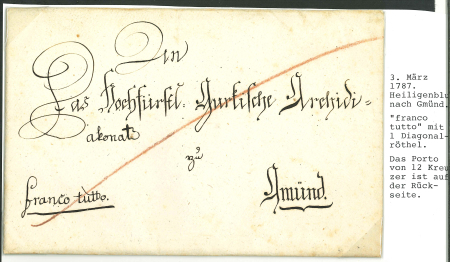 An
Das Hochfürstl: Gurkische Archidi=
akonat
zu
Franco tutto.
Gmünd.
3. März
1787.
Heiligenblu
nach Gmünd.
"franco
tutto" mit
1 Diagonal-
röthel.
Das Porto
von 12 Kreu
zer ist auf
der Rück-
seite.